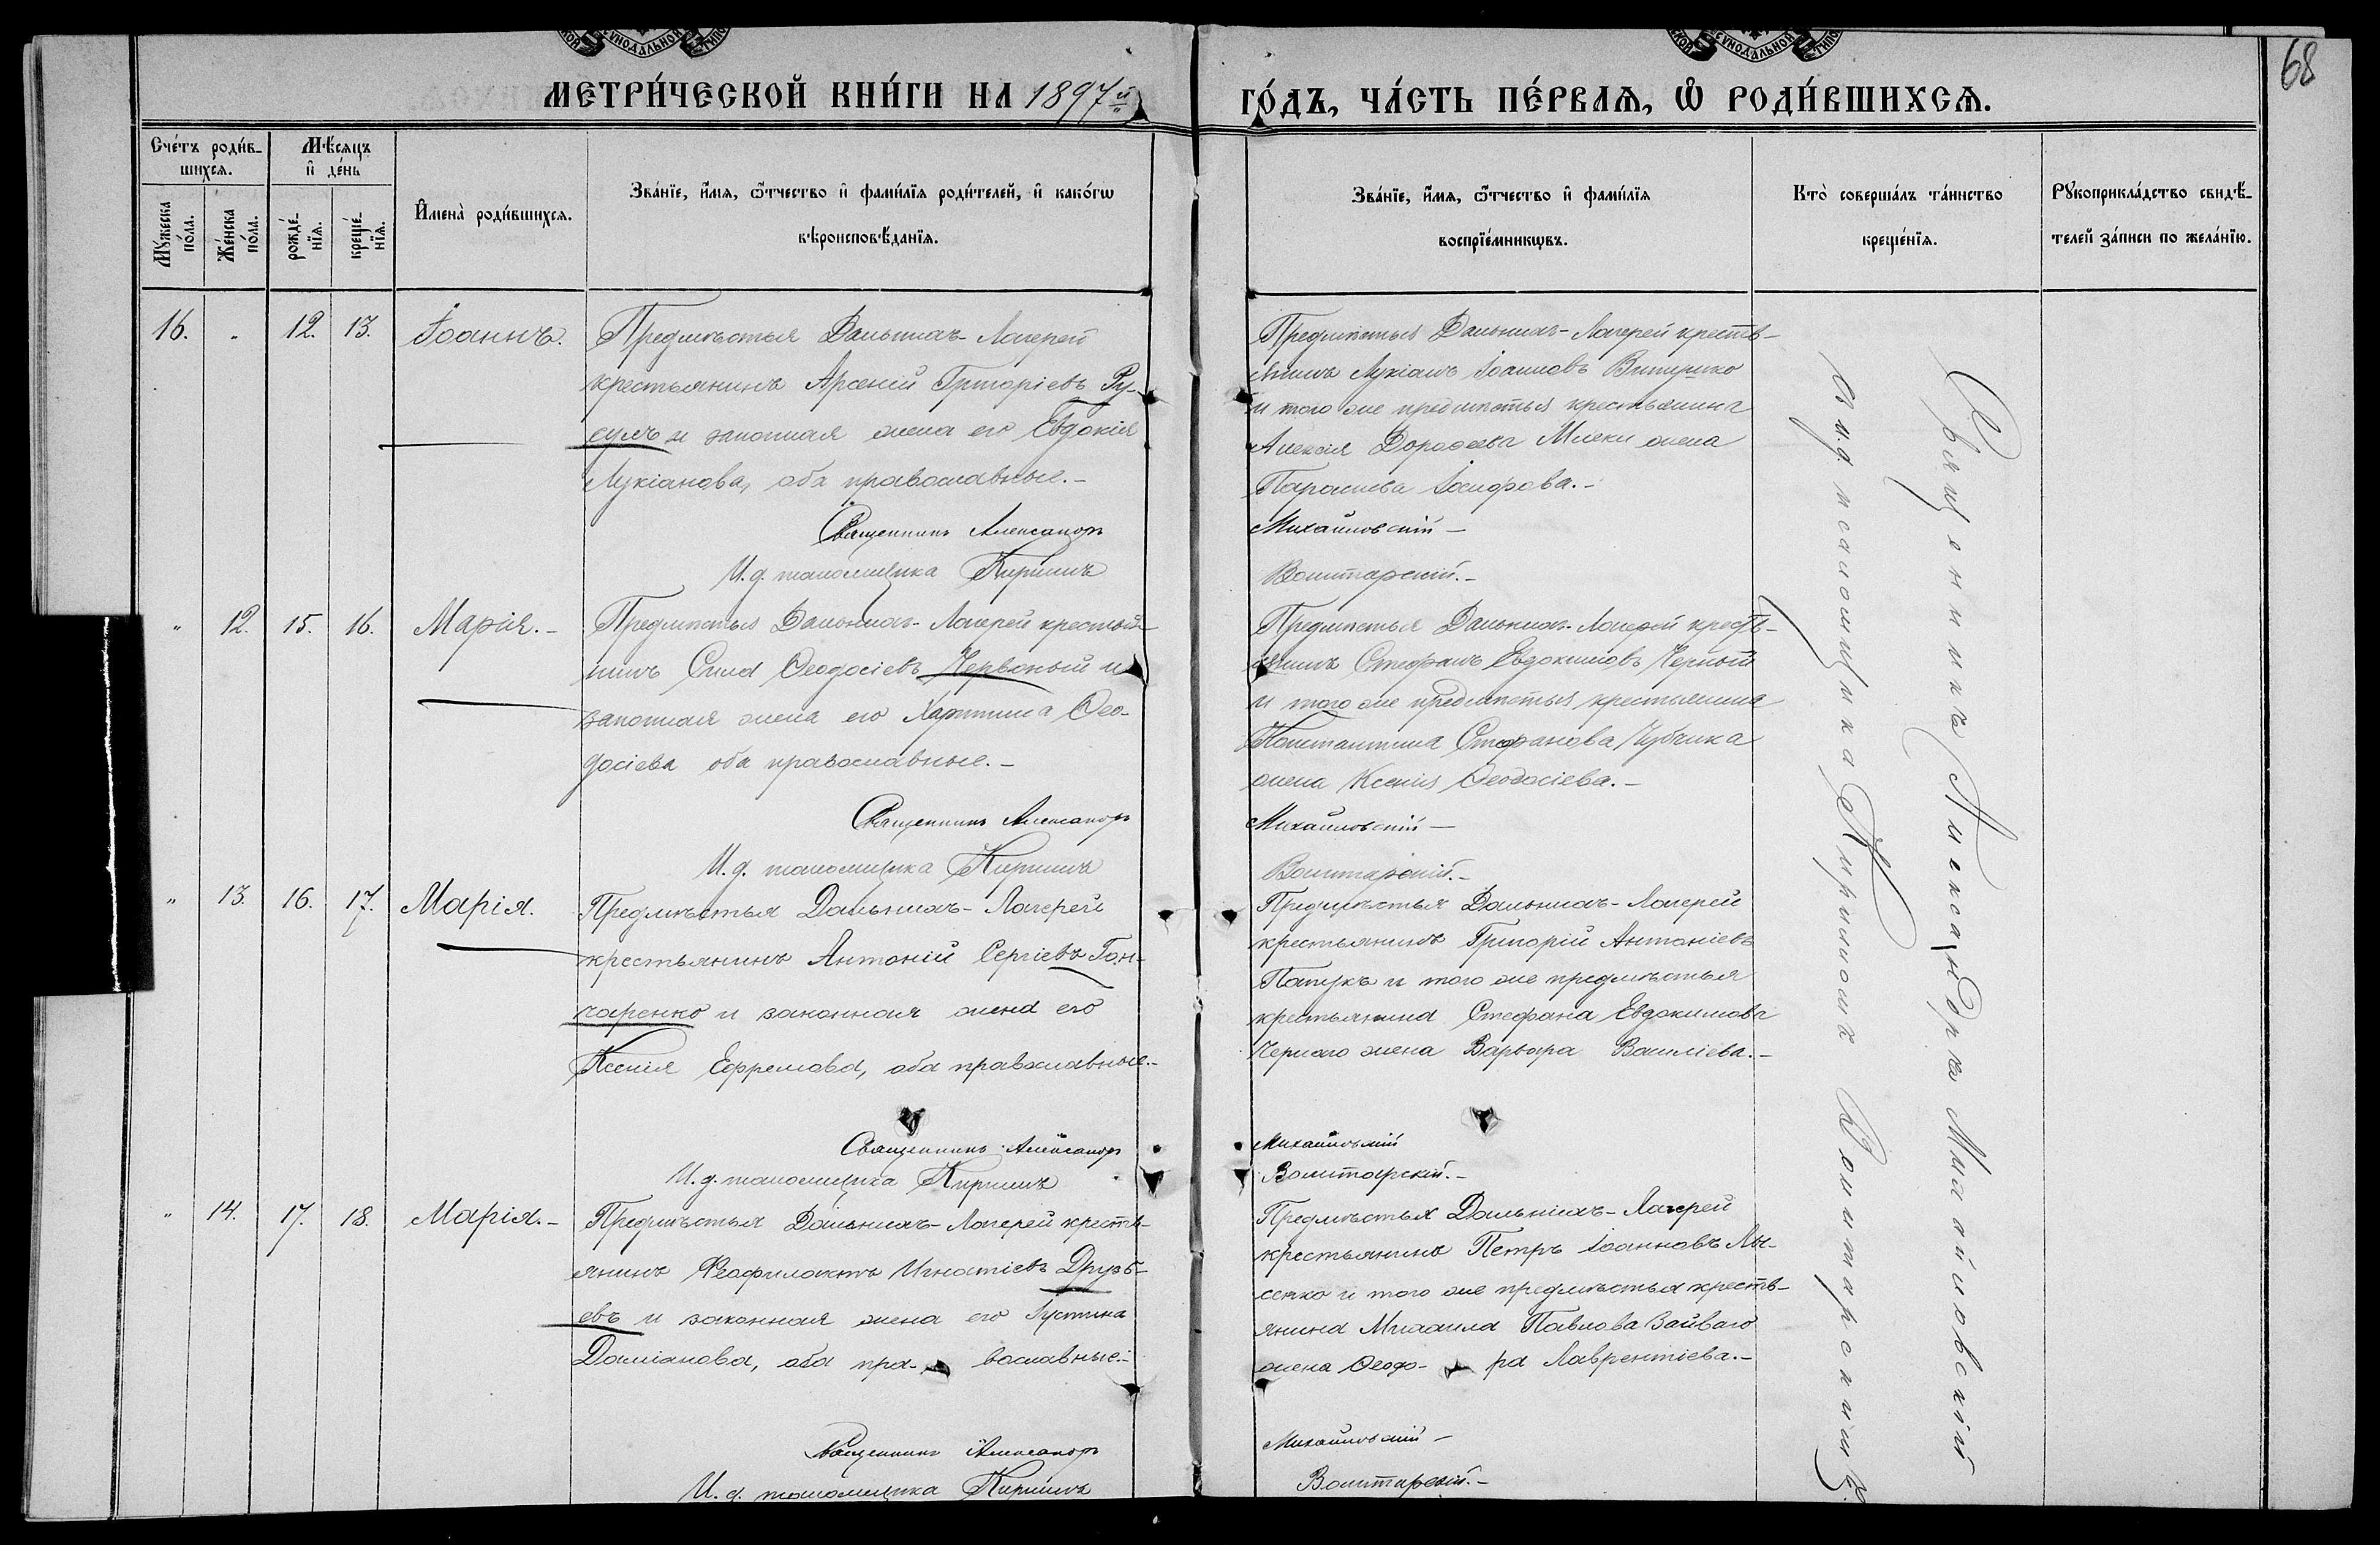 68
МЕТРИ́ЧЕСКОЙ КНИ́ГИ НА 1897й
ГО́ДЪ, ЧА́СТЬ ПЕ́РВАѦ, Ѡ҆ РОДИ́ВШИХСѦ.
Сче́тъ роди́в-
шихсѧ.
Мѣ́сѧцъ
и҆ де́нь
Мꙋ́жеска
по́ла.
Же́нска
по́ла.
рожде́-
нїѧ.
креще́-
нїѧ.
И҆мена̀ роди́вшихсѧ.
Зва́нїе, и҆́мѧ, ѻ҆́тчество и҆ фами́лїѧ роди́телей, и҆ како́гѡ
вѣроисповѣ́данїѧ.
Зва́нїе, и҆́мѧ, ѻ҆́тчество и҆ фами́лїѧ
воспрїе́мникѡвъ.
Кто̀ соверша́лъ та́инство
креще́нїѧ.
Рꙋкоприкла́дство свидѣ́-
телей за́писи по жела́нїю.
16. " 12. 13. Іоаннъ.
Предмѣстья Дальнихъ-Лагерей
крестьянинъ Арсеній Григоріевъ Ру-
сулъ и законная жена его Евдокія
Лукіанова, оба православные.-
Священникъ Александръ
И. д. псаломщика Кириллъ
Предмѣстья Дальнихъ-Лагерей кресть-
янинъ Лукіанъ Іоанновъ
и того же предмѣстья крестьянина
Алексія Дорофеева жена
Параскева Іосифова.-
Михайловскій-
Воитарскій.-
" 12. 15. 16. Марія.-
Предмѣстья Дальнихъ-Лагерей крестья-
нинъ Сила Ѳеодосіевъ Червоный и
законная жена его Харитина Ѳео-
досіева оба православные.-
Священникъ Александръ
И. д. псаломщика Кириллъ
Предмѣстья Дальнихъ-Лагерей кресть-
янинъ Стефанъ Евдокимовъ Черный
и того же предмѣстья крестьянина
Константина Стефанова Чубчика
жена Ксенія Ѳеодосіева.-
Михайловскій-
Воитарскій.-
" 13. 16. 17. Марія.
Предмѣстья Дальнихъ-Лагерей
крестьянинъ Антоній Сергіевъ Гон-
чаренко и законная жена его
Ксенія Ефремова, оба православные.-
Священникъ Александръ
И. д. псаломщика Кириллъ
Предмѣстья Дальнихъ-Лагерей
крестьянинъ Григорій Антоніевъ
Папукъ и того же предмѣстья
крестьянина Стефана Евдокимова
Чернаго жена Варвара Василіева.-
Михайловскій
Воитарскій.-
" 14. 17. 18. Марія.-
Предмѣстья Дальнихъ-Лагерей кресть-
янинъ Ѳеофилактъ Игнатіевъ Друзь-
евъ и законная жена его Іустина
Даміанова, оба пра- вославные.-
Священникъ Александръ
И. д. псаломщика Кириллъ
Предмѣстья Дальнихъ-Лагерей
крестьянинъ Петръ Іоанновъ Лы-
сенко и того же предмѣстья кресть-
янина Михаила Павлова
жена Ѳеодо- ра Лаврентіева.-
Михайловскій-
Воитарскій.-
Священникъ Александръ Михайловскій
и и. д. псаломщика Кириллъ Воитарскій.